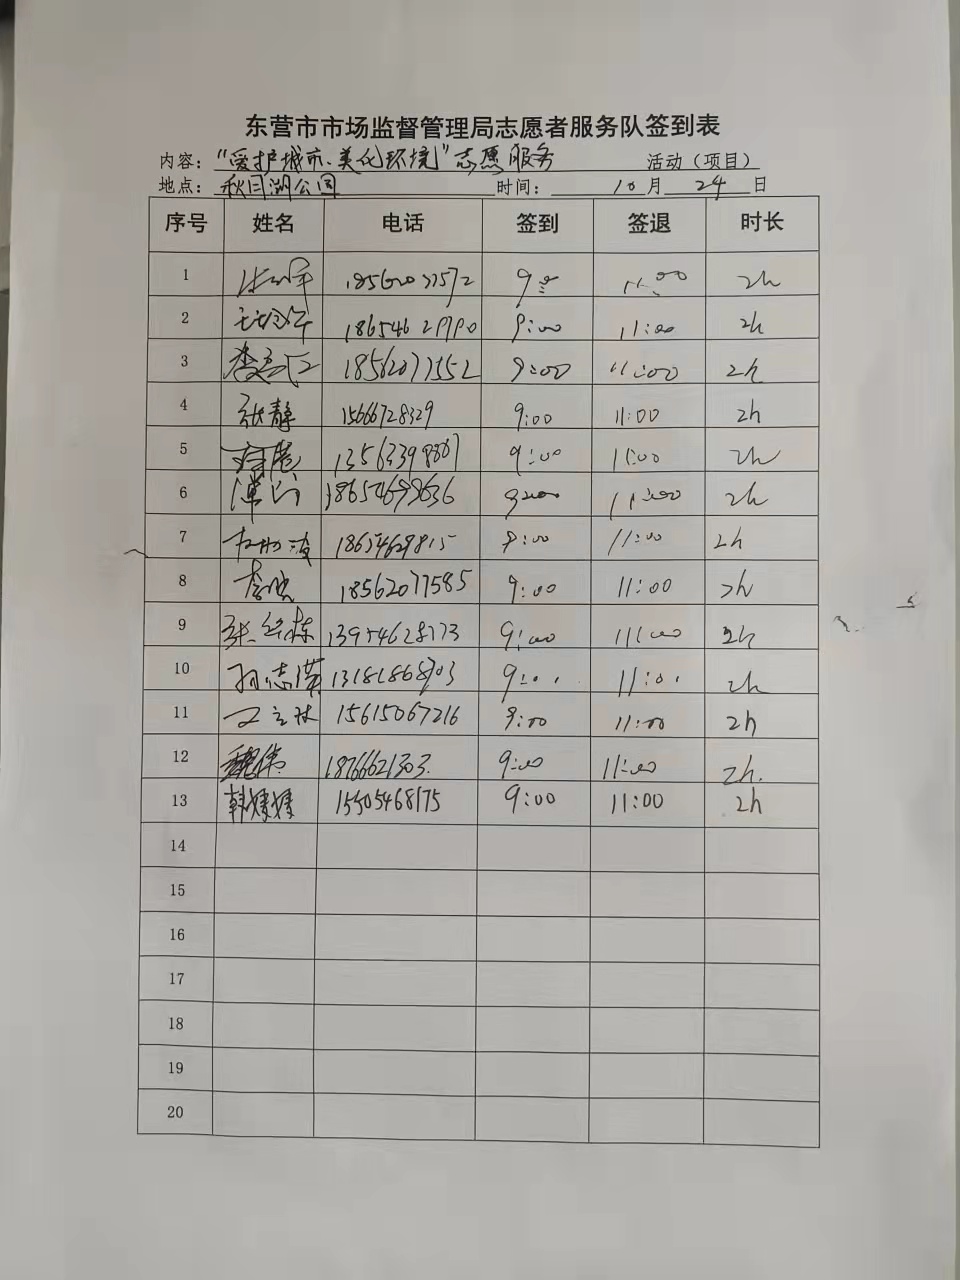 东营市市场监督管理局志愿者服务队签到表
内容：“爱护城市、美化环境”志愿服务 活动（项目）
地点：秋月湖公园 时间： 10 月 24 日
序号 姓名 电话 签到 签退 时长
1 11:00 2h
2 9:00 11:00 2h
3 18562077552 9:00 11:00 2h
4 张静 15666728329 9:00 11:00 2h
5 13563398867 9:00 11:00 2h
6 18654699636 9:00 11:00 2h
7 18654629815 9:00 11:00 2h
8 李晓 18562077585 9:00 11:00 2h
9 13954628773 9:00 11:00 2h
10 2h
11 15615067216 9:00 11:00 2h
12 魏伟 18766621303. 9:00 11:00 2h.
13 韩媛媛 15505468175 9:00 11:00 2h
14
15
16
17
18
19
20